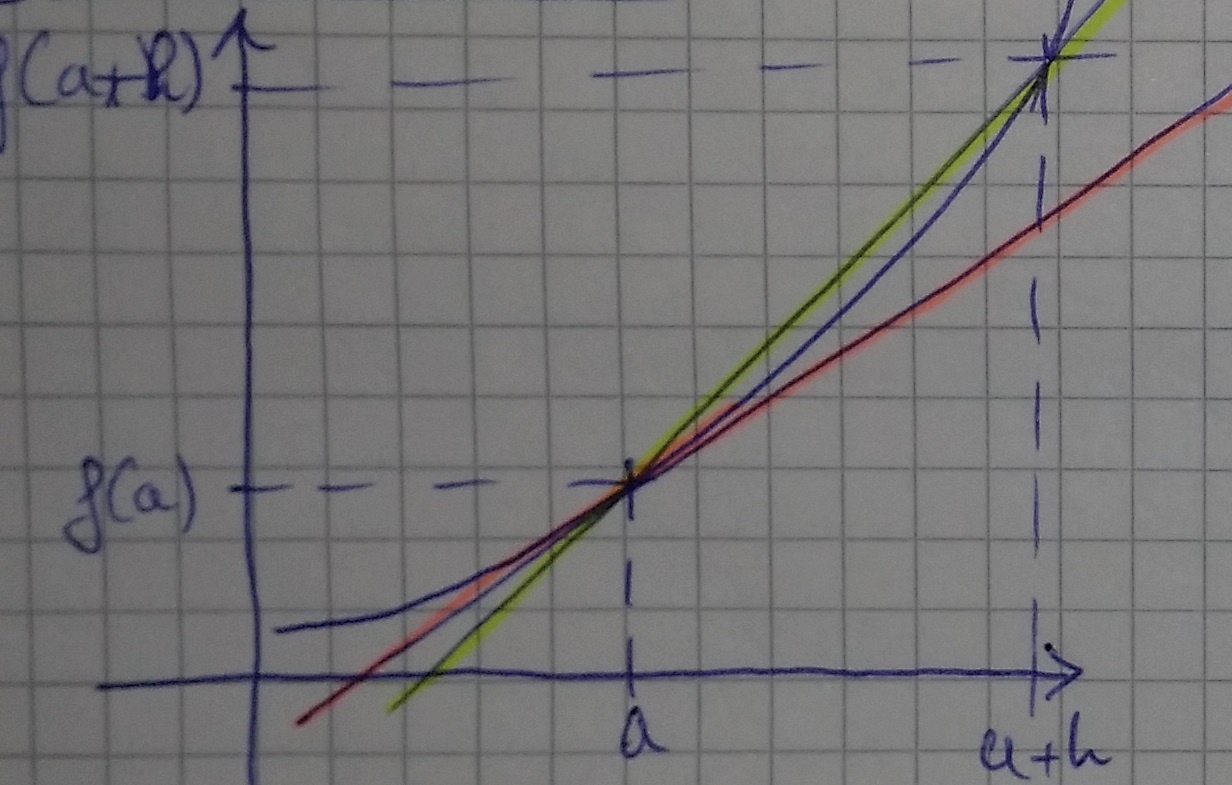 f(a+h)
f(a)
a
a+h